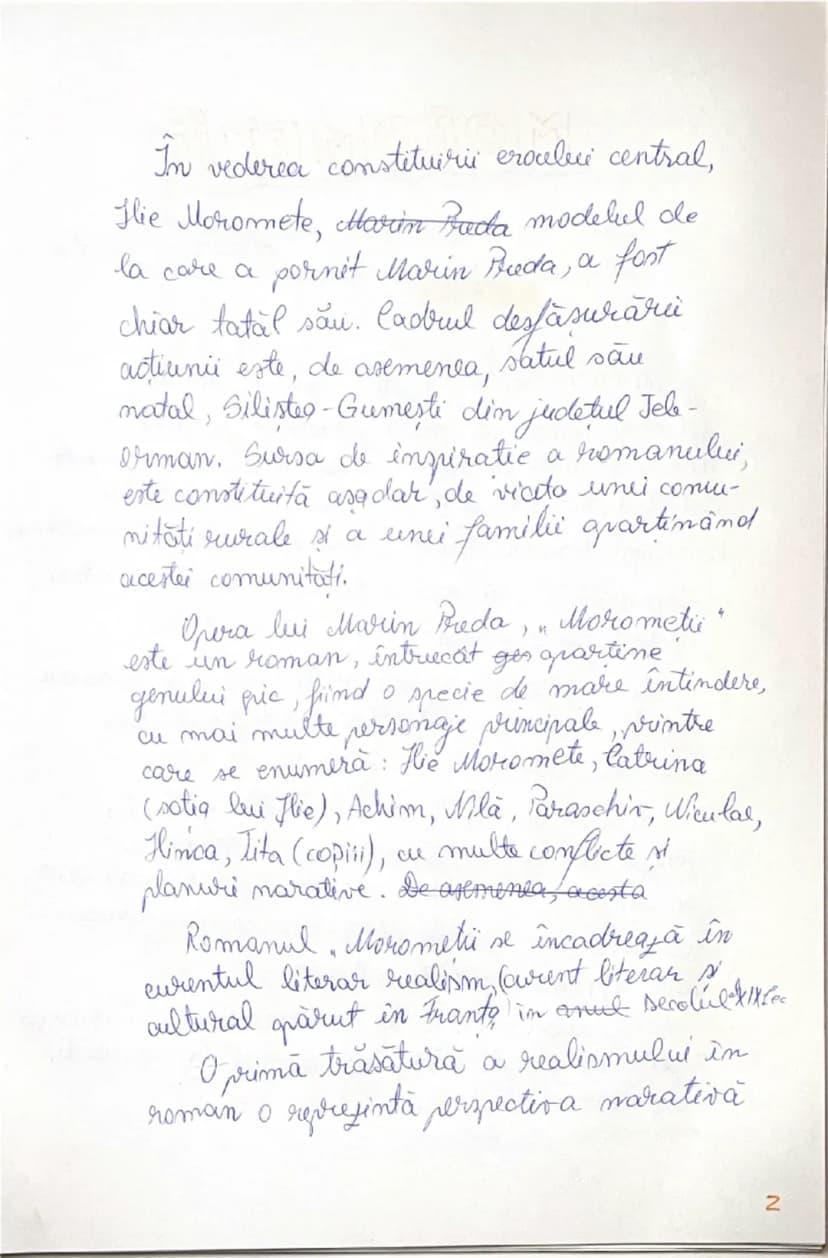 În vederea constituirii eroului central,
Ilie Moromete, Marin Preda modelul de
la care a pornit Marin Preda, a fost
chiar tatăl său. Cadrul desfășurării
acțiunii este, de asemenea, satul său
natal, Siliștea-Gumești din județul Tele-
orman. Sursa de inspiratie a romanului,
este constituită așadar, de viața unei comu-
nități rurale și a unei familii aparținând
acestei comunități.
Opera lui Marin Preda, „Moromeții"
este un roman, întrucât gen aparține
genului epic, fiind o specie de mare întindere,
cu mai multe personaje principale, printre
care se enumeră: Ilie Moromete, Catrina
(soția lui Ilie), Achim, Nilă, Paraschiv, Niculae,
Ilinca, Tita (copiii), cu multe conflicte și
planuri narative. De asemenea, acesta
Romanul „Moromeții se încadrează în
curentul literar realism, (curent literar și
cultural apărut în Franța) în anul secolul al XIXlea
O primă trăsătură a realismului în
roman o reprezintă perspectiva narativă
2